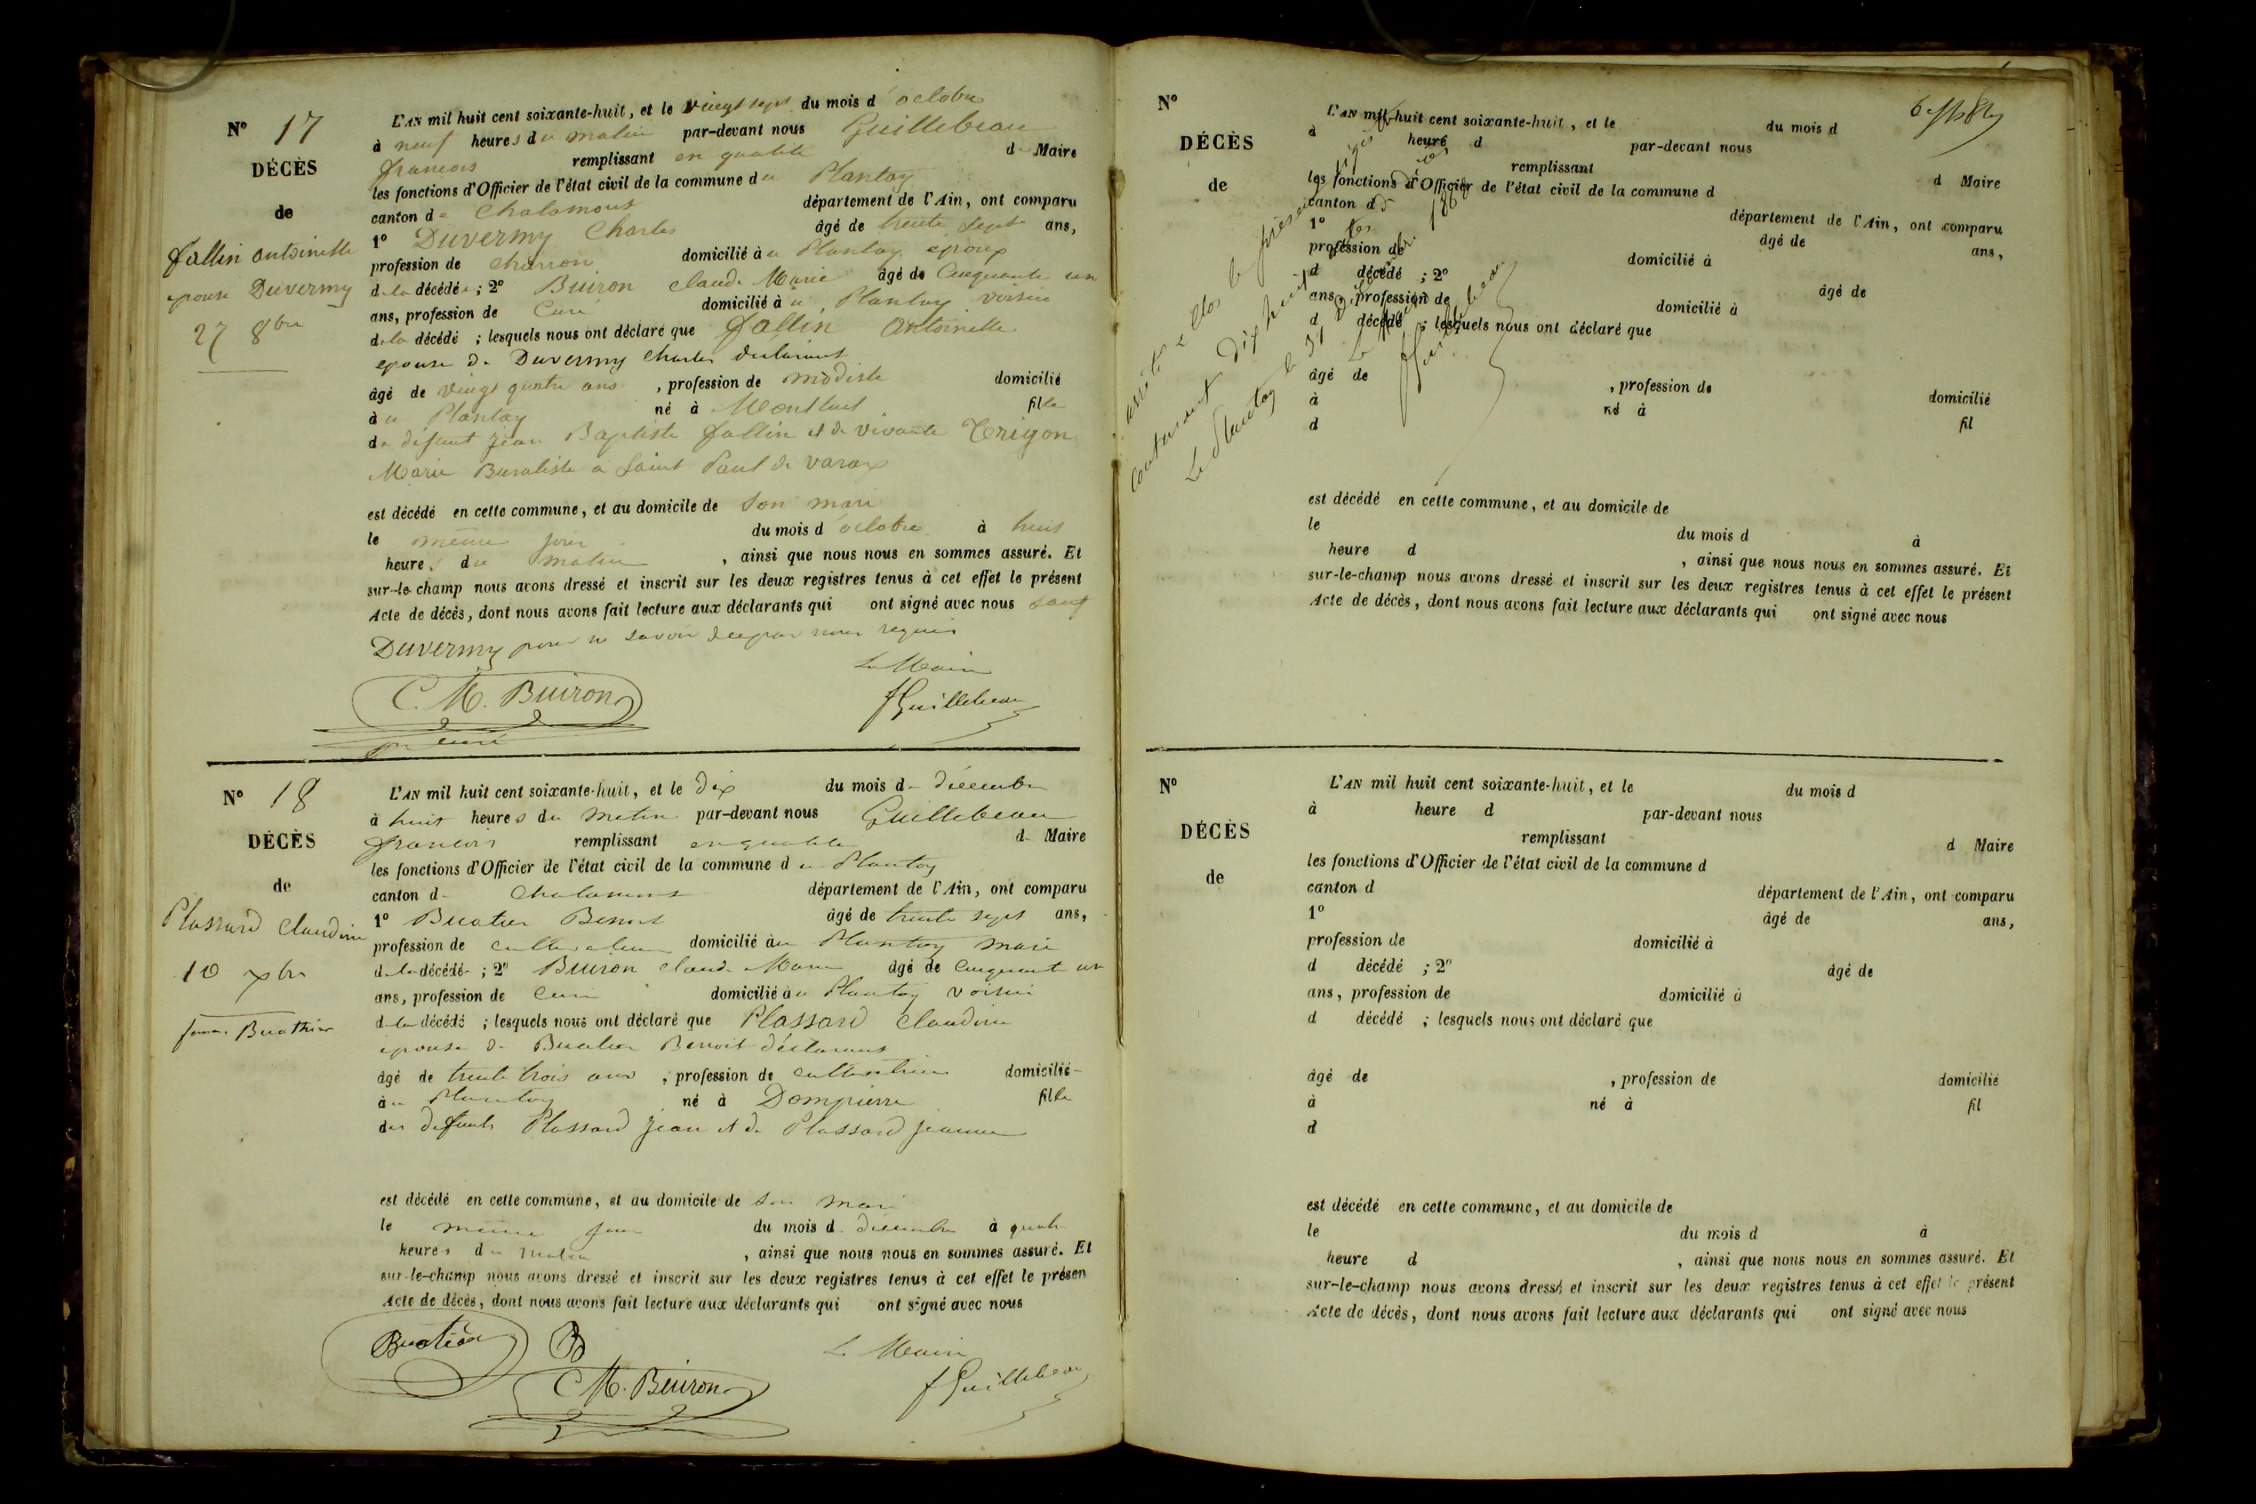 N° 17
DÉCÈS
de
fallin antoinette
epouse Duvermy
27 8bre
L'AN mil huit cent soixante-huit, et le vingt sept du mois d'octobre
à neuf heures du matin par-devant nous Guillebeau
francois remplissant en qualité de Maire
les fonctions d'Officier de l'état civil de la commune du Plantay
canton de Chalamont département de l'Ain, ont comparu
1° Duvermy Charles âgé de trente sept ans,
profession de charron domicilié au Plantay époux
de la décédée; 2° Buiron claude Marie âgé de Cinquante un
ans, profession de Curé domicilié au Plantay voisin
de la décédé ; lesquels nous ont déclaré que fallin Antoinette
epouse de Duvermy Charles declarant
âgé de vingt quatre ans , profession de modiste domicilié
à u Plantay né à Montluel fille
de defunt jean Baptiste fallin et de vivante Trigon
Marie Buraliste a Saint Paul de varax
est décédé en cette commune, et au domicile de son mari
le même jour du mois d'octobre à huit
heures du matin , ainsi que nous nous en sommes assuré. Et
sur-le-champ nous avons dressé et inscrit sur les deux registres tenus à cet effet le présent
Acte de décès, dont nous avons fait lecture aux déclarants qui ont signé avec nous sauf
Duvermy pour ne savoir de par nous requis
Le Maire
C. M. Buiron
fGuillebeau
curé
N° 18
DÉCÈS
de
Plassard Claudine
10 xbre
femme Buathier
L'AN mil huit cent soixante-huit, et le dix du mois de décembre
à huit heures du matin par-devant nous Guillebeau
francois remplissant en qualité de Maire
les fonctions d'Officier de l'état civil de la commune du Plantay
canton de Chalamont département de l'Ain, ont comparu
1° Buatier Benoit âgé de trente sept ans,
profession de cultivateur domicilié au Plantay mari
de la décédé ; 2° Buiron claude Marie âgé de Cinquante un
ans, profession de Curé domicilié au Plantay voisin
de la décédé ; lesquels nous ont déclaré que Plassard Claudine
epouse de Buatier Benoit déclarant
âgé de trente trois ans , profession de cultivatrice domicilié
au Plantay né à Dompierre fille
des defunts Plassard jean et de Plassard jeanne
est décédé en cette commune, et au domicile de son mari
le même jour du mois de décembre à quatre
heures du matin , ainsi que nous nous en sommes assuré. Et
sur-le-champ nous avons dressé et inscrit sur les deux registres tenus à cet effet le présen
Acte de décès, dont nous avons fait lecture aux déclarants qui ont signé avec nous
Buatier B
Le Maire
C M. Buiron
fGuillebeau
N°
DÉCÈS
de
L'AN mil huit cent soixante-huit, et le du mois d
à heure d par-devant nous
remplissant d Maire
les fonctions d'Officier de l'état civil de la commune d
canton d département de l'Ain, ont comparu
1° âgé de ans,
profession de domicilié à
d décédé ; 2° âgé de
ans, profession de domicilié à
d décédé ; lesquels nous ont déclaré que
âgé de , profession de domicilié
à né à fil
d
est décédé en cette commune, et au domicile de
le du mois d à
heure d , ainsi que nous nous en sommes assuré. Et
sur-le-champ nous avons dressé et inscrit sur les deux registres tenus à cet effet le présent
Acte de décès, dont nous avons fait lecture aux déclarants qui ont signé avec nous
arrêté et clos le présent
contenant dix huit
Le Plantay le 31 1868
Le Maire
fGuillebeau
N°
DÉCÈS
de
L'AN mil huit cent soixante-huit, et le du mois d
à heure d par-devant nous
remplissant d Maire
les fonctions d'Officier de l'état civil de la commune d
canton d département de l'Ain, ont comparu
1° âgé de ans,
profession de domicilié à
d décédé ; 2° âgé de
ans, profession de domicilié à
d décédé ; lesquels nous ont déclaré que
âgé de , profession de domicilié
à né à fil
d
est décédé en cette commune, et au domicile de
le du mois d à
heure d , ainsi que nous nous en sommes assuré. Et
sur-le-champ nous avons dressé et inscrit sur les deux registres tenus à cet effet le présent
Acte de décès, dont nous avons fait lecture aux déclarants qui ont signé avec nous